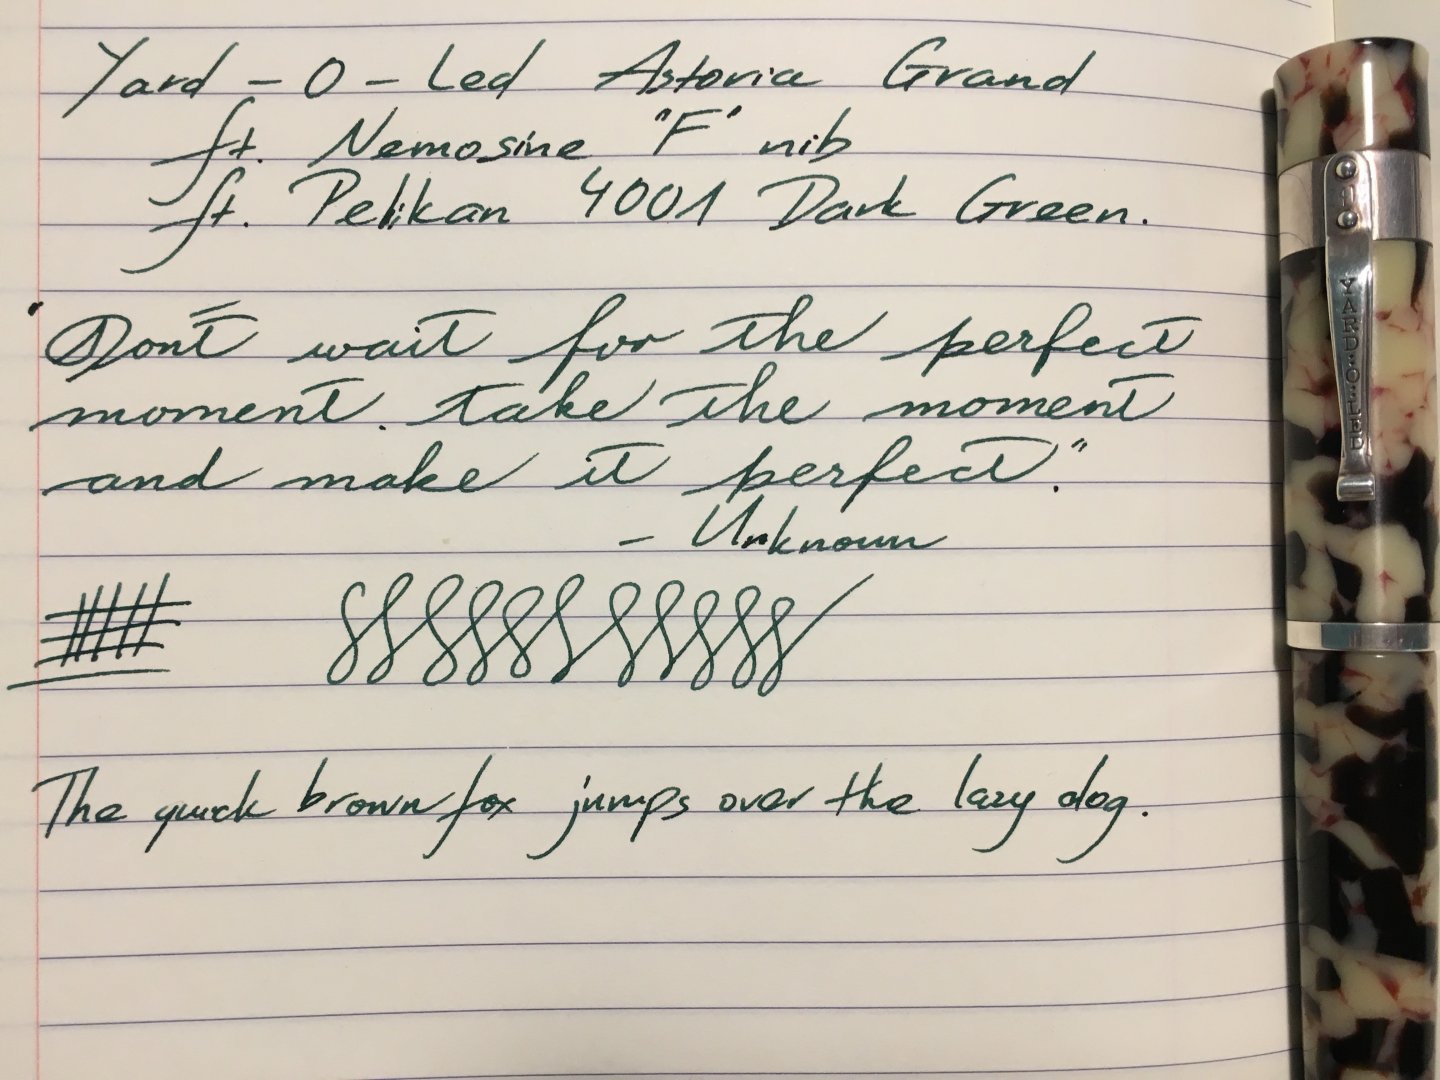 Yard-O-Led Astoria Grand
ft. Nemosine "F" nib
ft. Pelikan 4001 Dark Green.
"Don't wait for the perfect
moment. take the moment
and make it perfect."
- Unknown
The quick brown fox jumps over the lazy dog.
YARD·O·LED